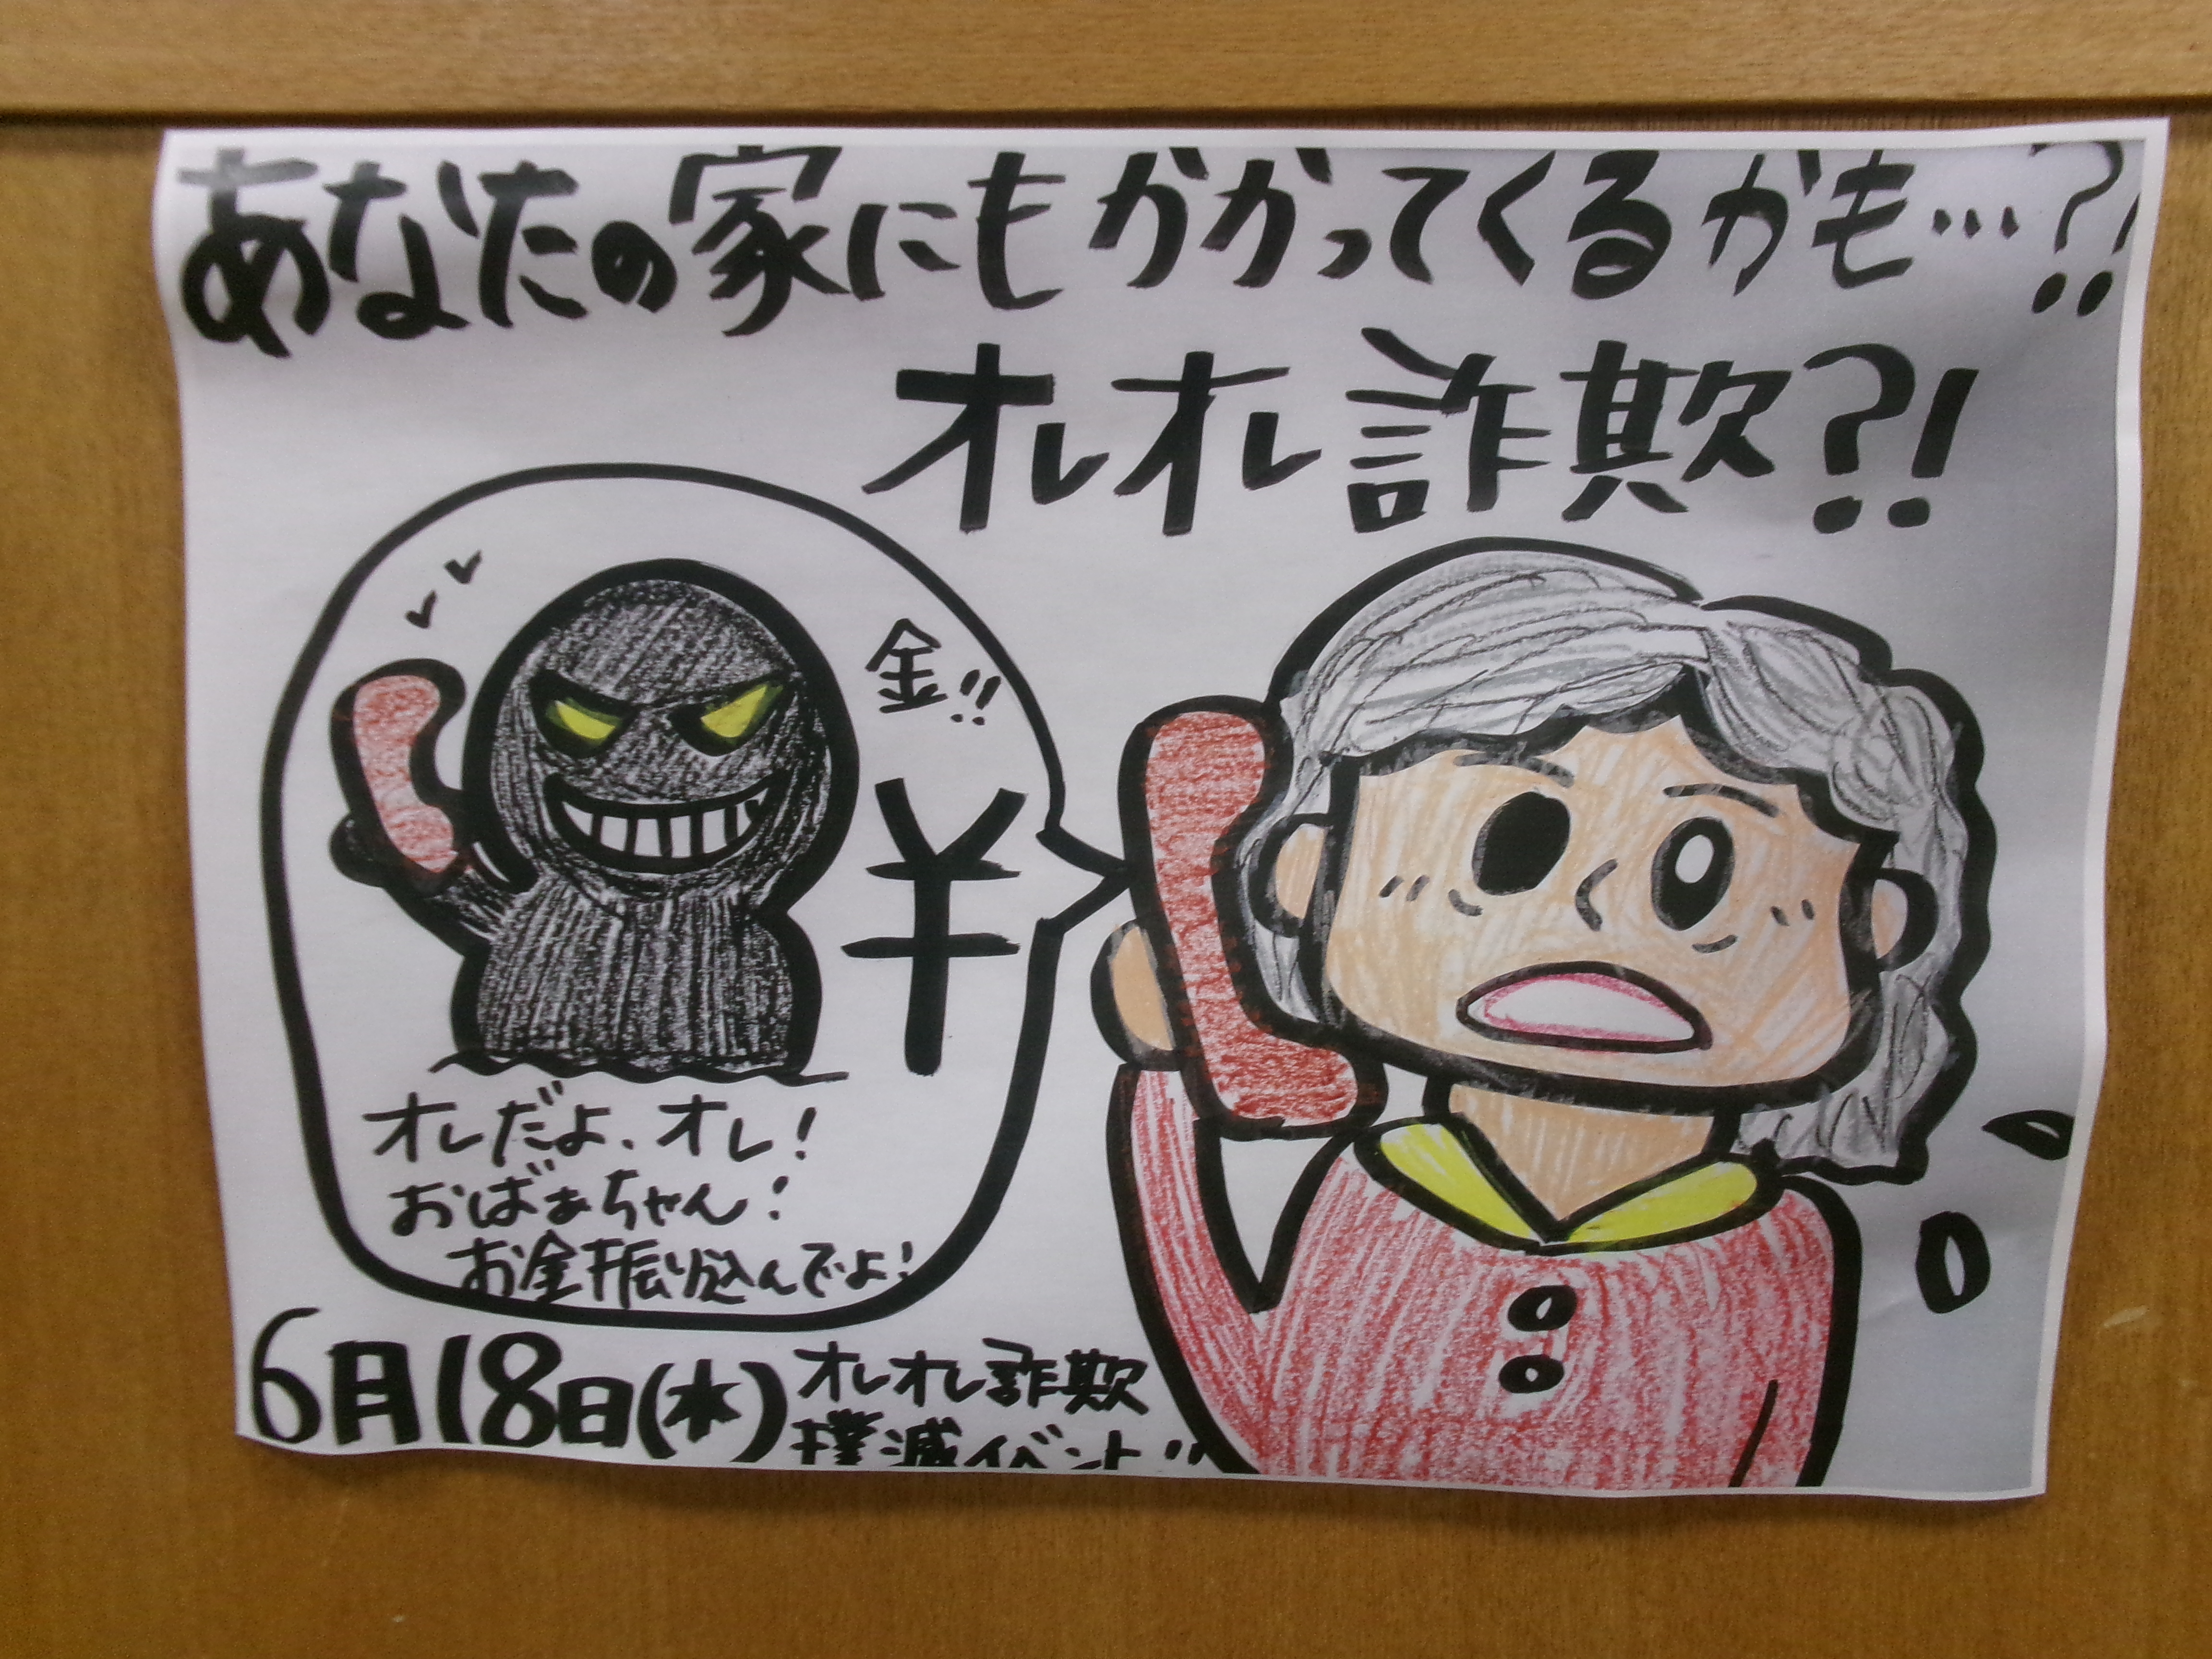 あなたの家にもかかってくるかも…?!
オレオレ詐欺?!
金!!
¥
オレだよ、オレ!
おばぁちゃん!
お金振り込んでよ!
6月18日(水)
オレオレ詐欺
撲滅イベント!!